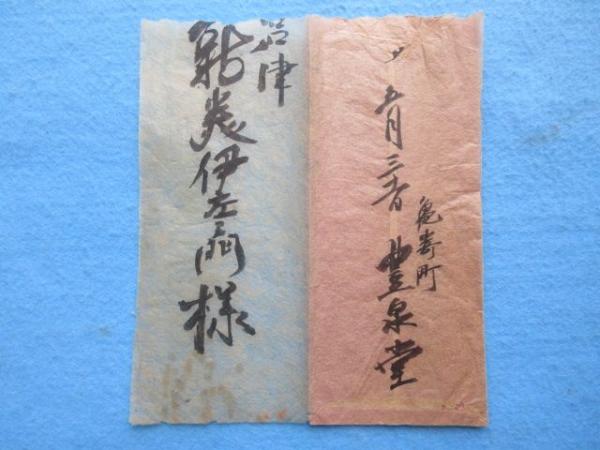 亀寿町
〆 五月三十日 豊泉堂
沼津
伊左衛門様